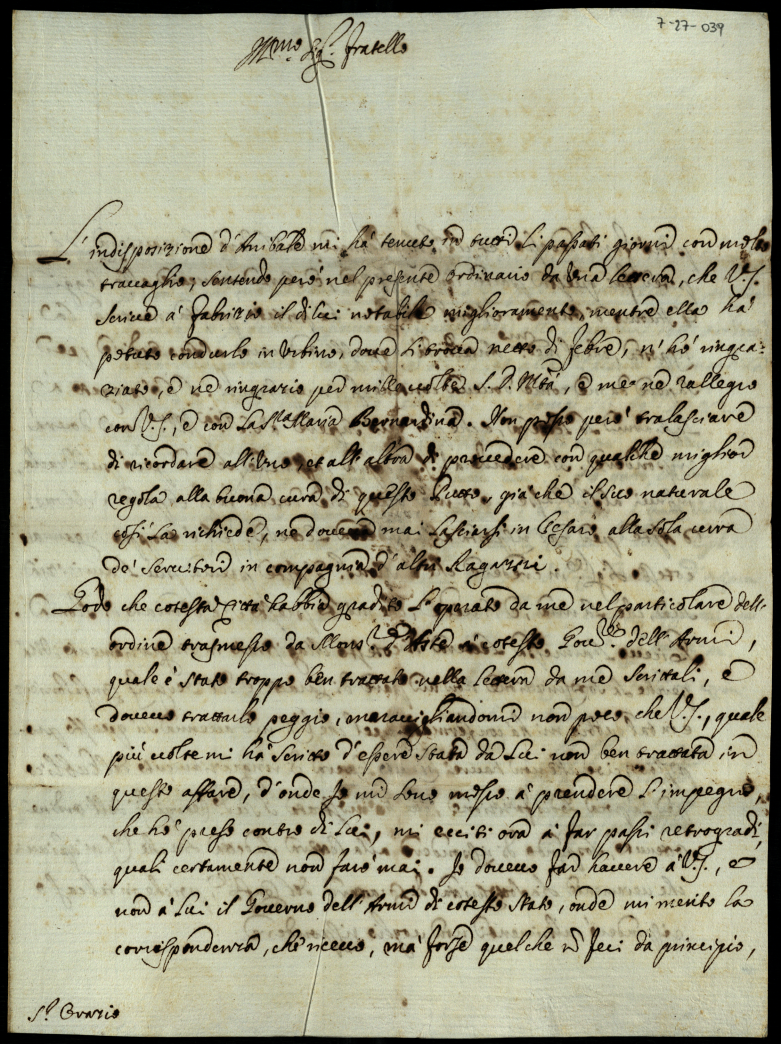 7-27-039
Ill.mo Sig.r fratello
L'indisposizione d'Anibale mi hà tenuto in tutti li passati giorni con molto
travaglio, sentendo però nel presente ordinario da una lettera, che V.S.
scrive à Fabrizio il di lui notabile miglioramento, mentre ella hà
potuto condurlo in Urbino, dove si trova netto di febre, n'hò ringra-
ziato, e ne ringrazio per mille volte S. D. M.tà, e me ne rallegro
con V.S., e con la S.ra Maria Bernardina. Non posso però tralasciare
di ricordare all'uno, et all'altra di provedere con qualche miglior
regola alla buona cura di questo Putto, già che il suo naturale
così la richiede, ne doversi mai lasciarsi in Pesaro alla sola cura
de' Servitori in compagnia d'altri Ragazzi.
Godo che cotesta Città habbia gradito l'operato da me nel particolare dell'
ordine trasmesso da Mons.r d'Aste à cotesto Gov.re dell'Armi,
quale è stato troppo ben trattato nella lettera da me scrittali, e
dovevo trattarlo peggio, maravigliandomi non poco, che V.S., quale
più volte mi hà scritto d'essere stata da Lui non ben trattata in
questo affare, d'onde Io mi sono messo à prendere l'impegno,
che hò preso contro di Lui, mi ecciti ora à far passi retrogradi,
quali certamente non farò mai. Io dovevo far havere à V.S., e
non à Lui il Governo dell'Armi di cotesto Stato, onde mi merito la
corrispondenza, che ricevo, mà forse quelche n feci da principio,
S.r Orazio